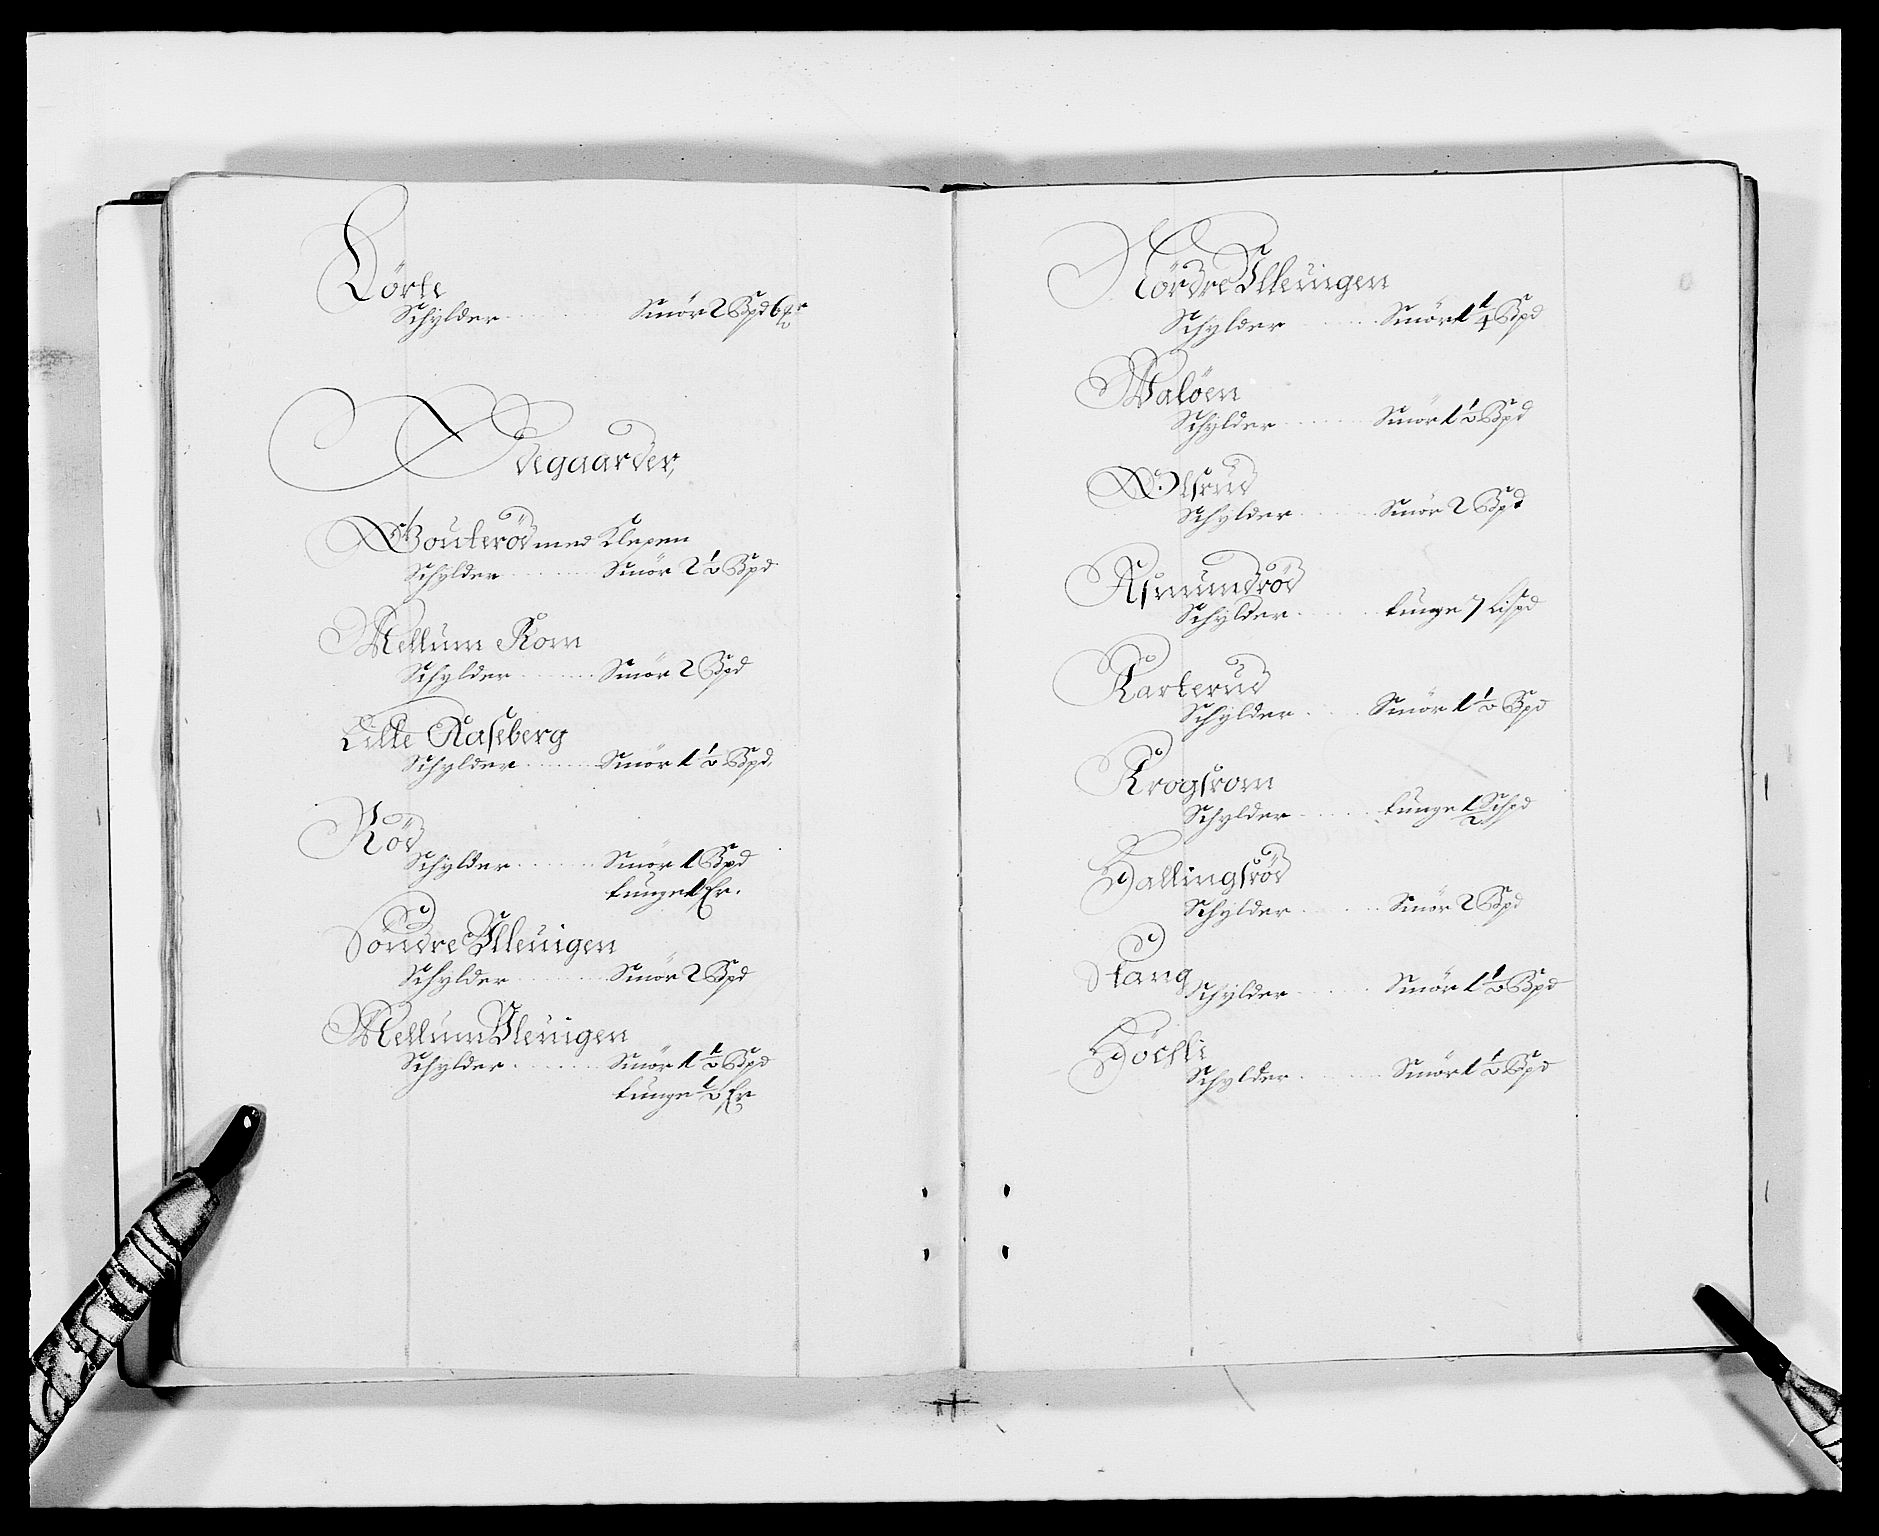 Lörte
Schylder Smör 2 Bpd 6
Ödegaarder,
Gouteröd med Klepen
Schylder Smör 2 1/2 Bpd
Mellum Rom
Schylder Smör 2 Bpd
Lille Kaseberg
Schylder Smör 1 1/2 Bpd,
Röd
Schylder Smör 1 Bpd
tunge 1 Fr.
Söndre Illeuigen
Schylder Smör 2 Bpd
Mellum Illeuigen
Schylder Smör 1 1/2 Bpd
tunge 1/2 Fr
Nördre Illeuigen
Schylder Smör 1 1/4 Bpd
Walöen
Schylder Smör 1 1/2 Bpd
Olsrud
Schylder Smör 2 Bpd
Asmundröd
Schylder tunge 7 Lispd
Karterud
Schylder Smör 1 1/2 Bpd
Krogsrom
Schylder tunge 1/2 Schpd
Hallingsröd
Schylder Smör 2 Bpd
Stang
Schylder Smör 1 1/2 Bpd
Höchli
Schylder Smör 1 1/2 Bpd